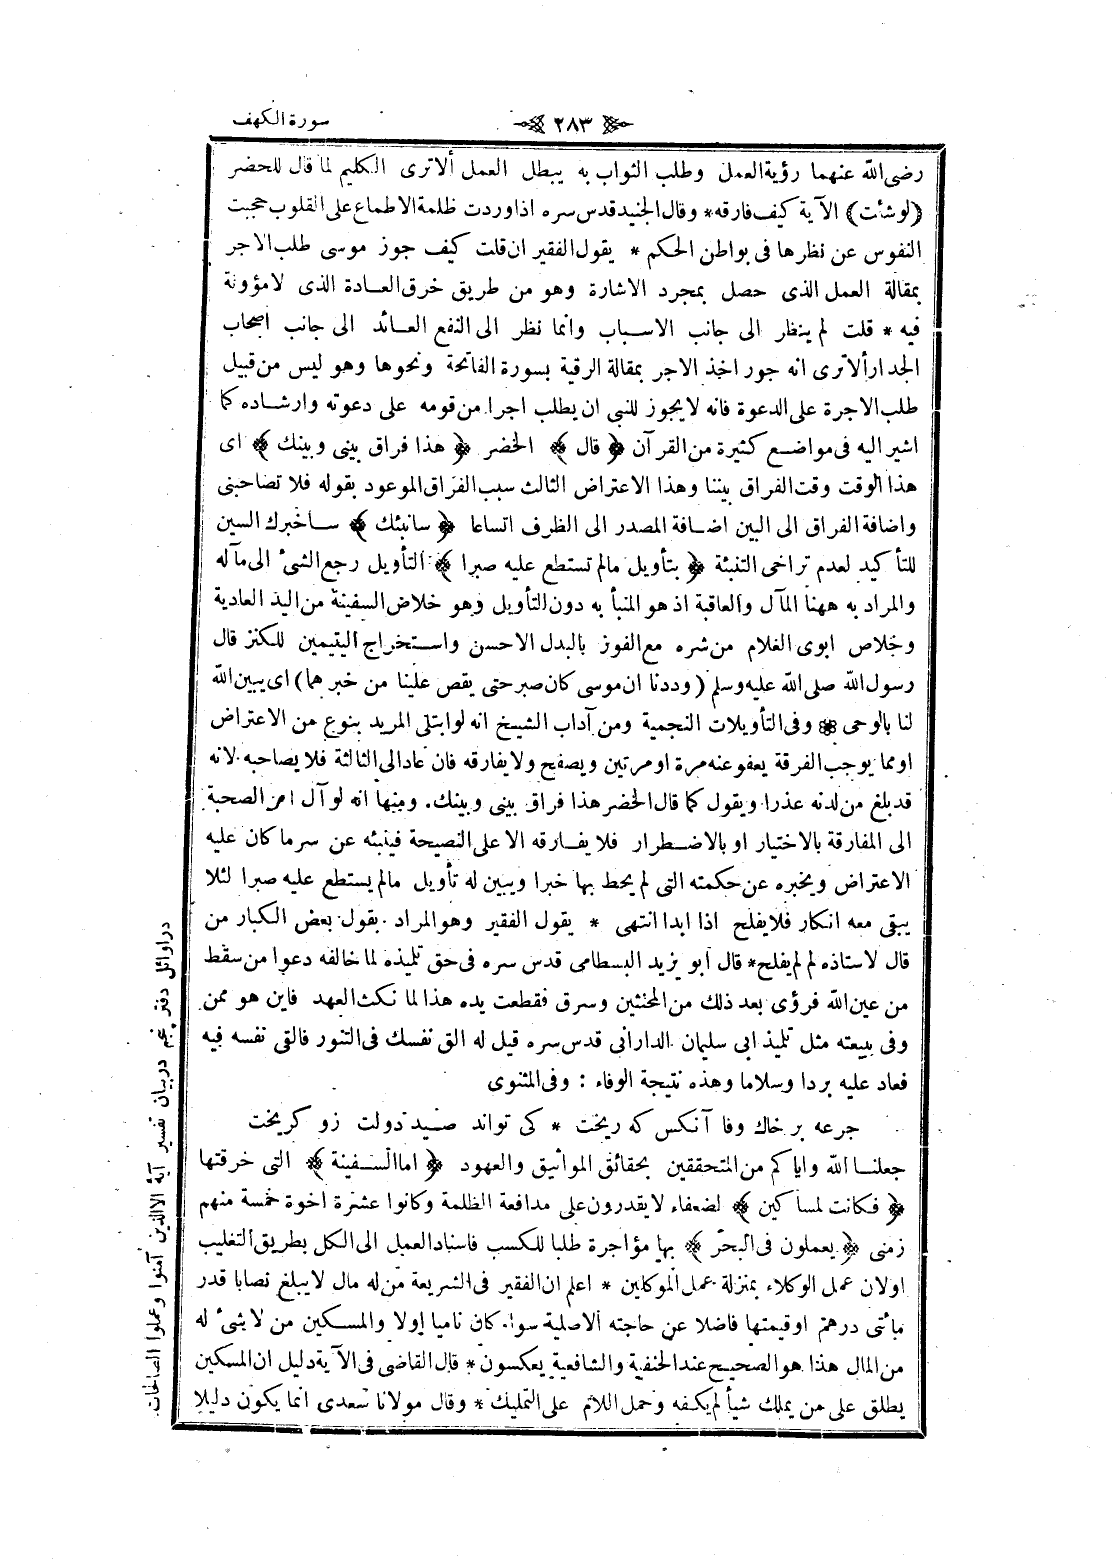 سورة الكهف
٢٨٣
رضى الله عنهما رؤية العمل وطلب الثواب به يبطل العمل ألاترى الكليم لما قال للخضر
(لوشئت) الآية كيف فارقه * وقال الجنيد قدس سره اذا وردت ظلمة الاطماع على القلوب حجبت
النفوس عن نظرها فى بواطن الحكم * يقول الفقير ان قلت كيف جوز موسى طلب الاجر
بمقالة العمل الذى حصل بمجرد الاشارة وهو من طريق خرق العادة الذى لامؤونة
فيه * قلت لم ينظر الى جانب الاسباب وانما نظر الى النفع العائد الى جانب اصحاب
الجدار ألاترى انه جور اخذ الاجر بمقالة الرقية بسورة الفاتحة ونحوها وهو ليس من قبيل
طلب الاجرة على الدعوة فانه لايجوز للنبى ان يطلب اجرا من قومه على دعوته وارشاده كما
اشير اليه فى مواضع كثيرة من القرآن ﴿ قال ﴾ الخضر ﴿ هذا فراق بينى وبينك ﴾ اى
هذا الوقت وقت الفراق بيننا وهذا الاعتراض الثالث سبب الفراق الموعود بقوله فلا تصاحبنى
واضافة الفراق الى البين اضافة المصدر الى الظرف اتساعا ﴿ سانبئك ﴾ ساخبرك السين
للتأكيد لعدم تراخى التنبئة ﴿ بتأويل مالم تستطع عليه صبرا ﴾ التأويل رجع الشئ الى مآله
والمراد به ههنا المآل والعاقبة اذ هو المنبأ به دون التأويل وهو خلاص السفينة من اليد العادية
وخلاص ابوى الغلام من شره مع الفوز بالبدل الاحسن واستخراج اليتيمين للكنز قال
رسول الله صلى الله عليه وسلم (وددنا ان موسى كان صبر حتى يقص علينا من خبرهما) اى يبين الله
لنا بالوحى * وفى التأويلات النجمية ومن آداب الشيخ انه لوابتلى المريد بنوع من الاعتراض
اومما يوجب الفرقة يعفو عنه مرة او مرتين ويصفح ولايفارقه فان عاد الى الثالثة فلا يصاحبه لانه
قد بلغ من لدنه عذرا ويقول كما قال الخضر هذا فراق بينى وبينك. ومنها انه لو آل امر الصحبة
الى المفارقة بالاختيار او بالاضطرار فلا يفارقه الا على النصيحة فينبئه عن سر ما كان عليه
الاعتراض ويخبره عن حكمته التى لم يحط بها خبرا ويبين له تأويل مالم يستطع عليه صبرا لئلا
يبقى معه انكار فلايفلح اذا ابدا انتهى * يقول الفقير وهو المراد بقول بعض الكبار من
قال لاستاذه لم لم يفلح * قال أبو يزيد البسطامى قدس سره فى حق تلميذه لما خالفه دعوا من سقط
من عين الله فرؤى بعد ذلك من المخنثين وسرق فقطعت يده هذا لما نكث العهد فاين هو ممن
وفى ببيعته مثل تلميذ ابى سليمان الدارانى قدس سره قيل له الق نفسك فى التنور فالقى نفسه فيه
فعاد عليه بردا وسلاما وهذه نتيجة الوفاء : وفى المثنوى
جرعه بر خاك وفا آنكس كه ريخت * كى تواند صيد دولت زو كريخت
جعلنا الله واياكم من المتحققين بحقائق المواثيق والعهود ﴿ اما السفينة ﴾ التى خرقتها
﴿ فكانت لمساكين ﴾ لضعفاء لا يقدرون على مدافعة الظلمة وكانوا عشرة اخوة خمسة منهم
زمنى ﴿ يعملون فى البحر ﴾ بها مؤاجرة طلبا للكسب فاسناد العمل الى الكل بطريق التغليب
اولان عمل الوكلاء بمنزلة عمل الموكلين * اعلم ان الفقير فى الشريعة من له مال لايبلغ نصابا قدر
مائتى درهم اوقيمتها فاضلا عن حاجته الاصلية سواء كان ناميا اولا والمسكين من لا شئ له
من المال هذا هو الصحيح عند الحنفية والشافعية يعكسون * قال القاضى فى الآية دليل ان المسكين
يطلق على من يملك شيأ لم يكفه وحمل اللام على التمليك * وقال مولانا سعدى انما يكون دليلا
در اوائل دفتر پنجم در بيان تفسير آية الا الذين آمنوا وعملوا الصالحات